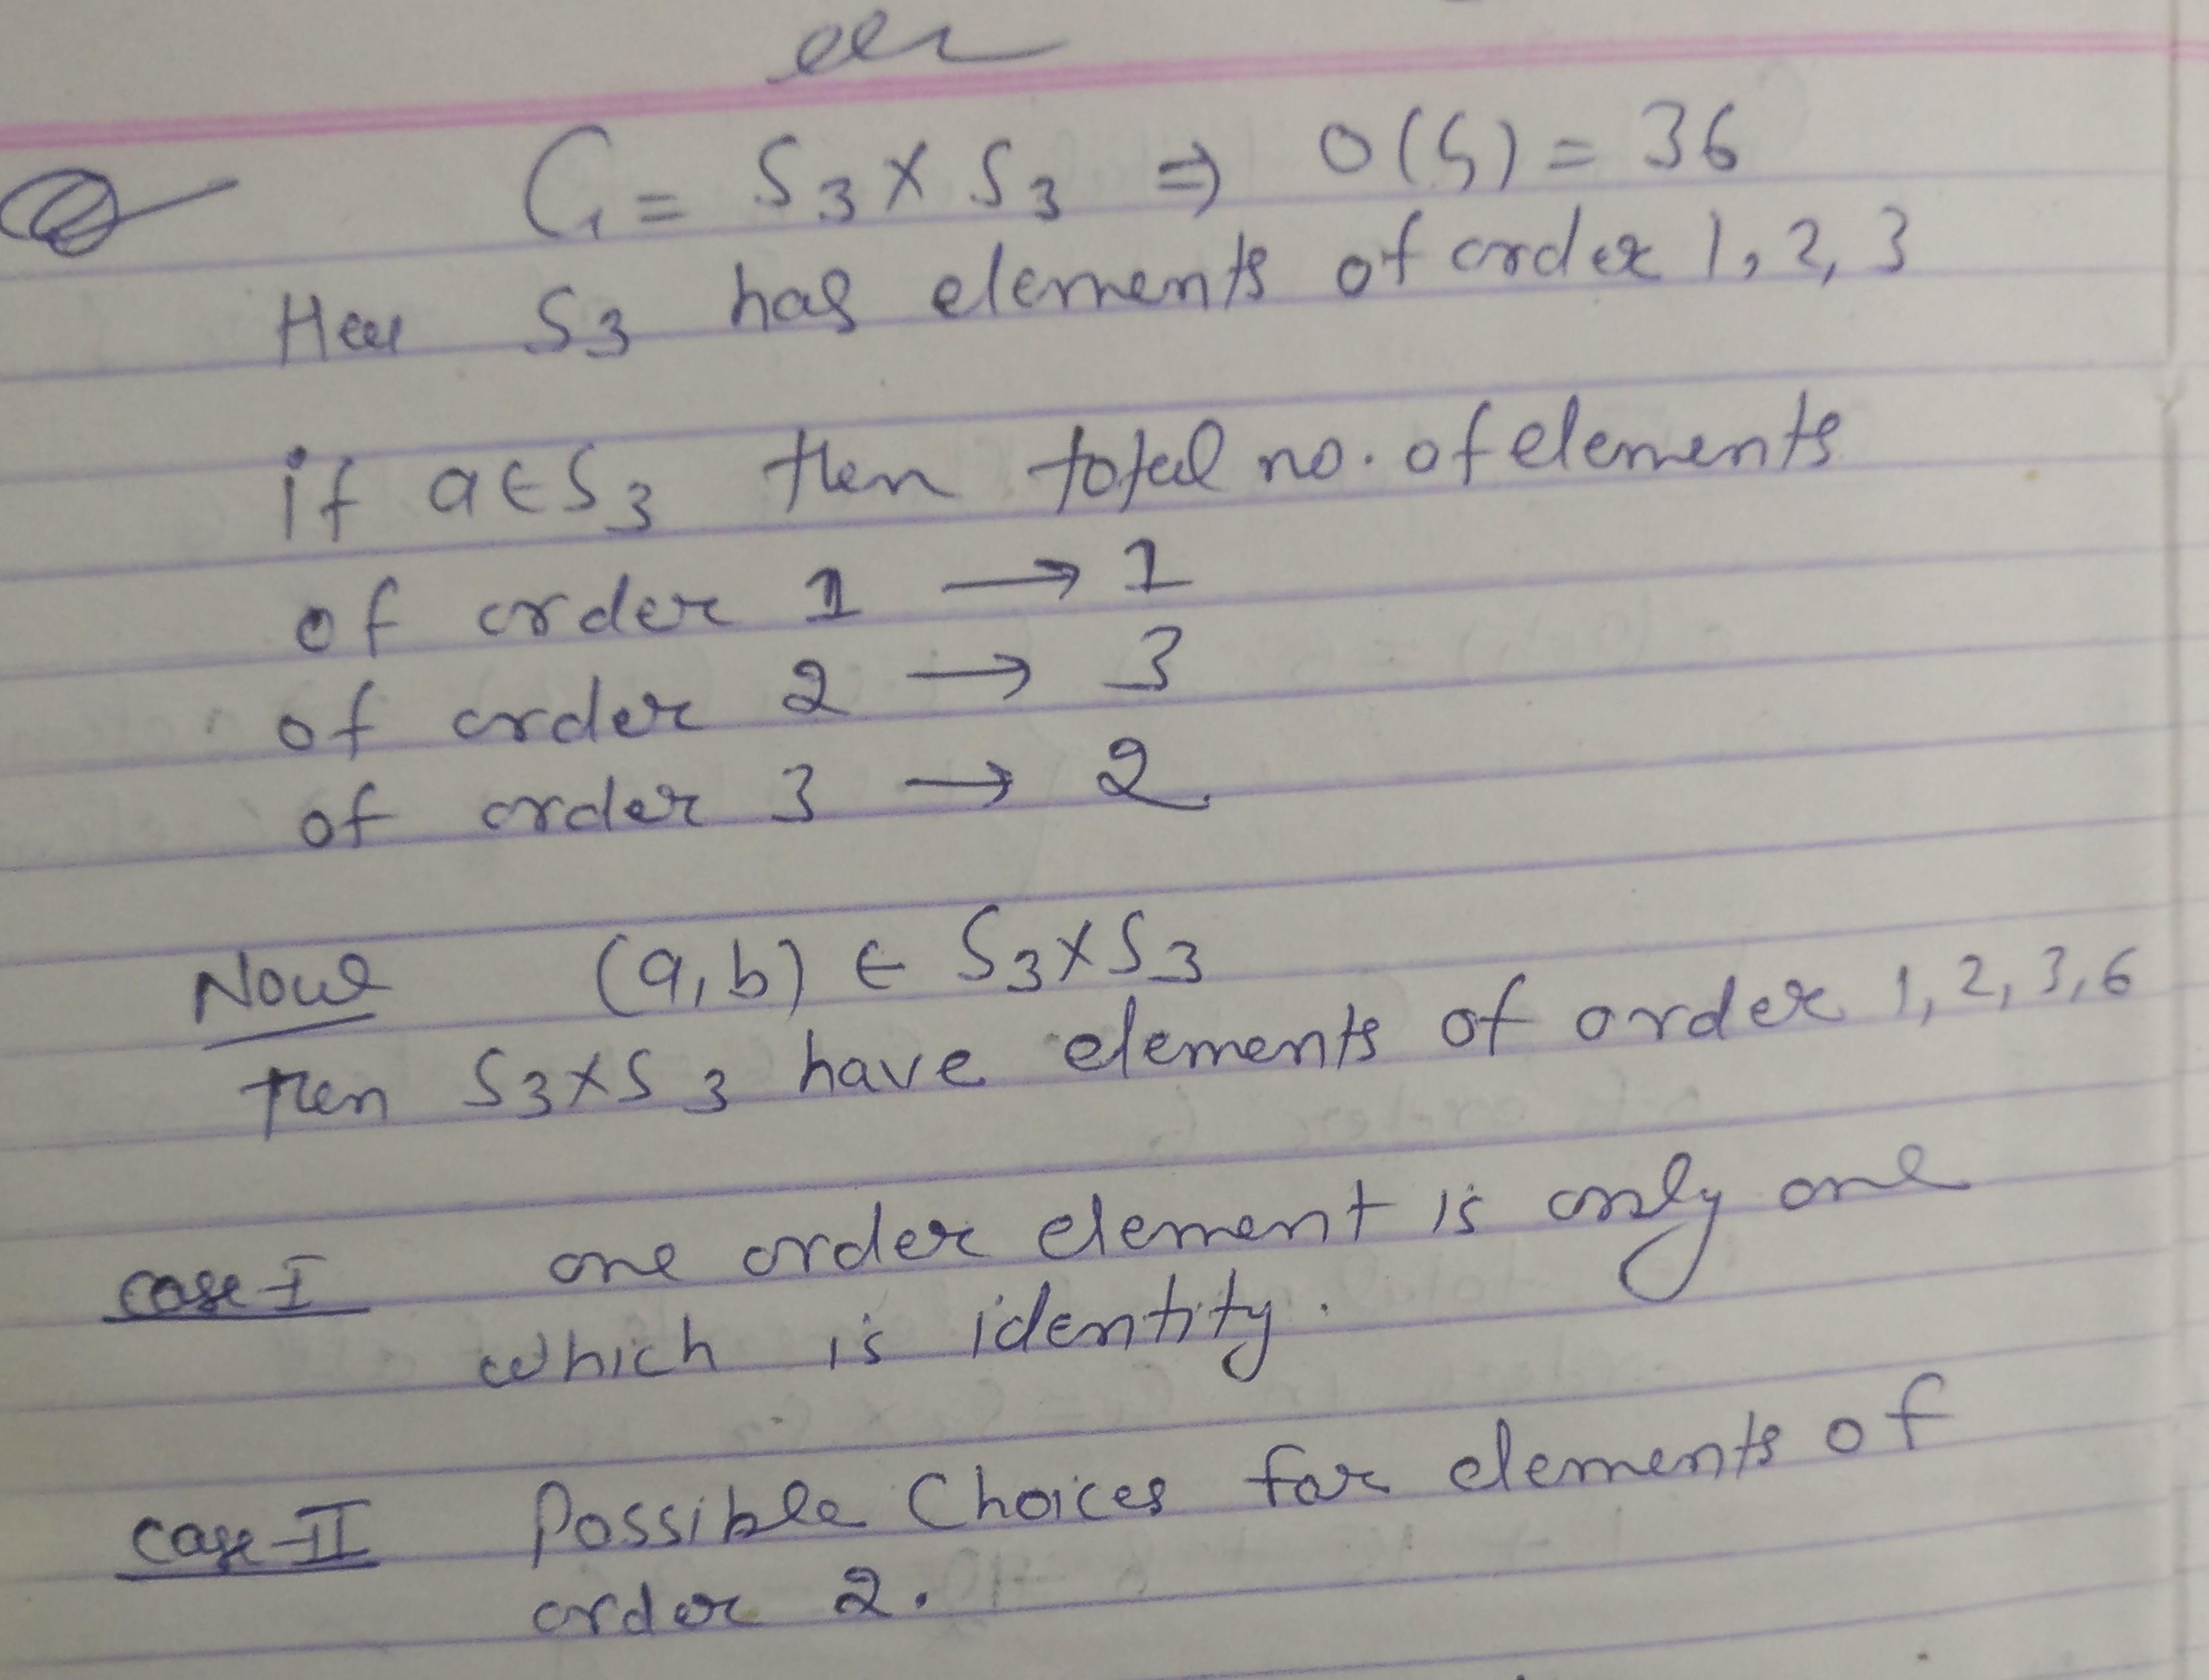 or
G = S3 X S3 ⇒ O(G) = 36
Here S3 has elements of order 1, 2, 3
if a ∈ S3 then total no. of elements
of order 1 → 1
of order 2 → 3
of order 3 → 2.
Now (a, b) ∈ S3 X S3
then S3 X S3 have elements of order 1, 2, 3, 6
case-I one order element is only one
which is identity.
case-II Possible Choices for elements of
order 2.